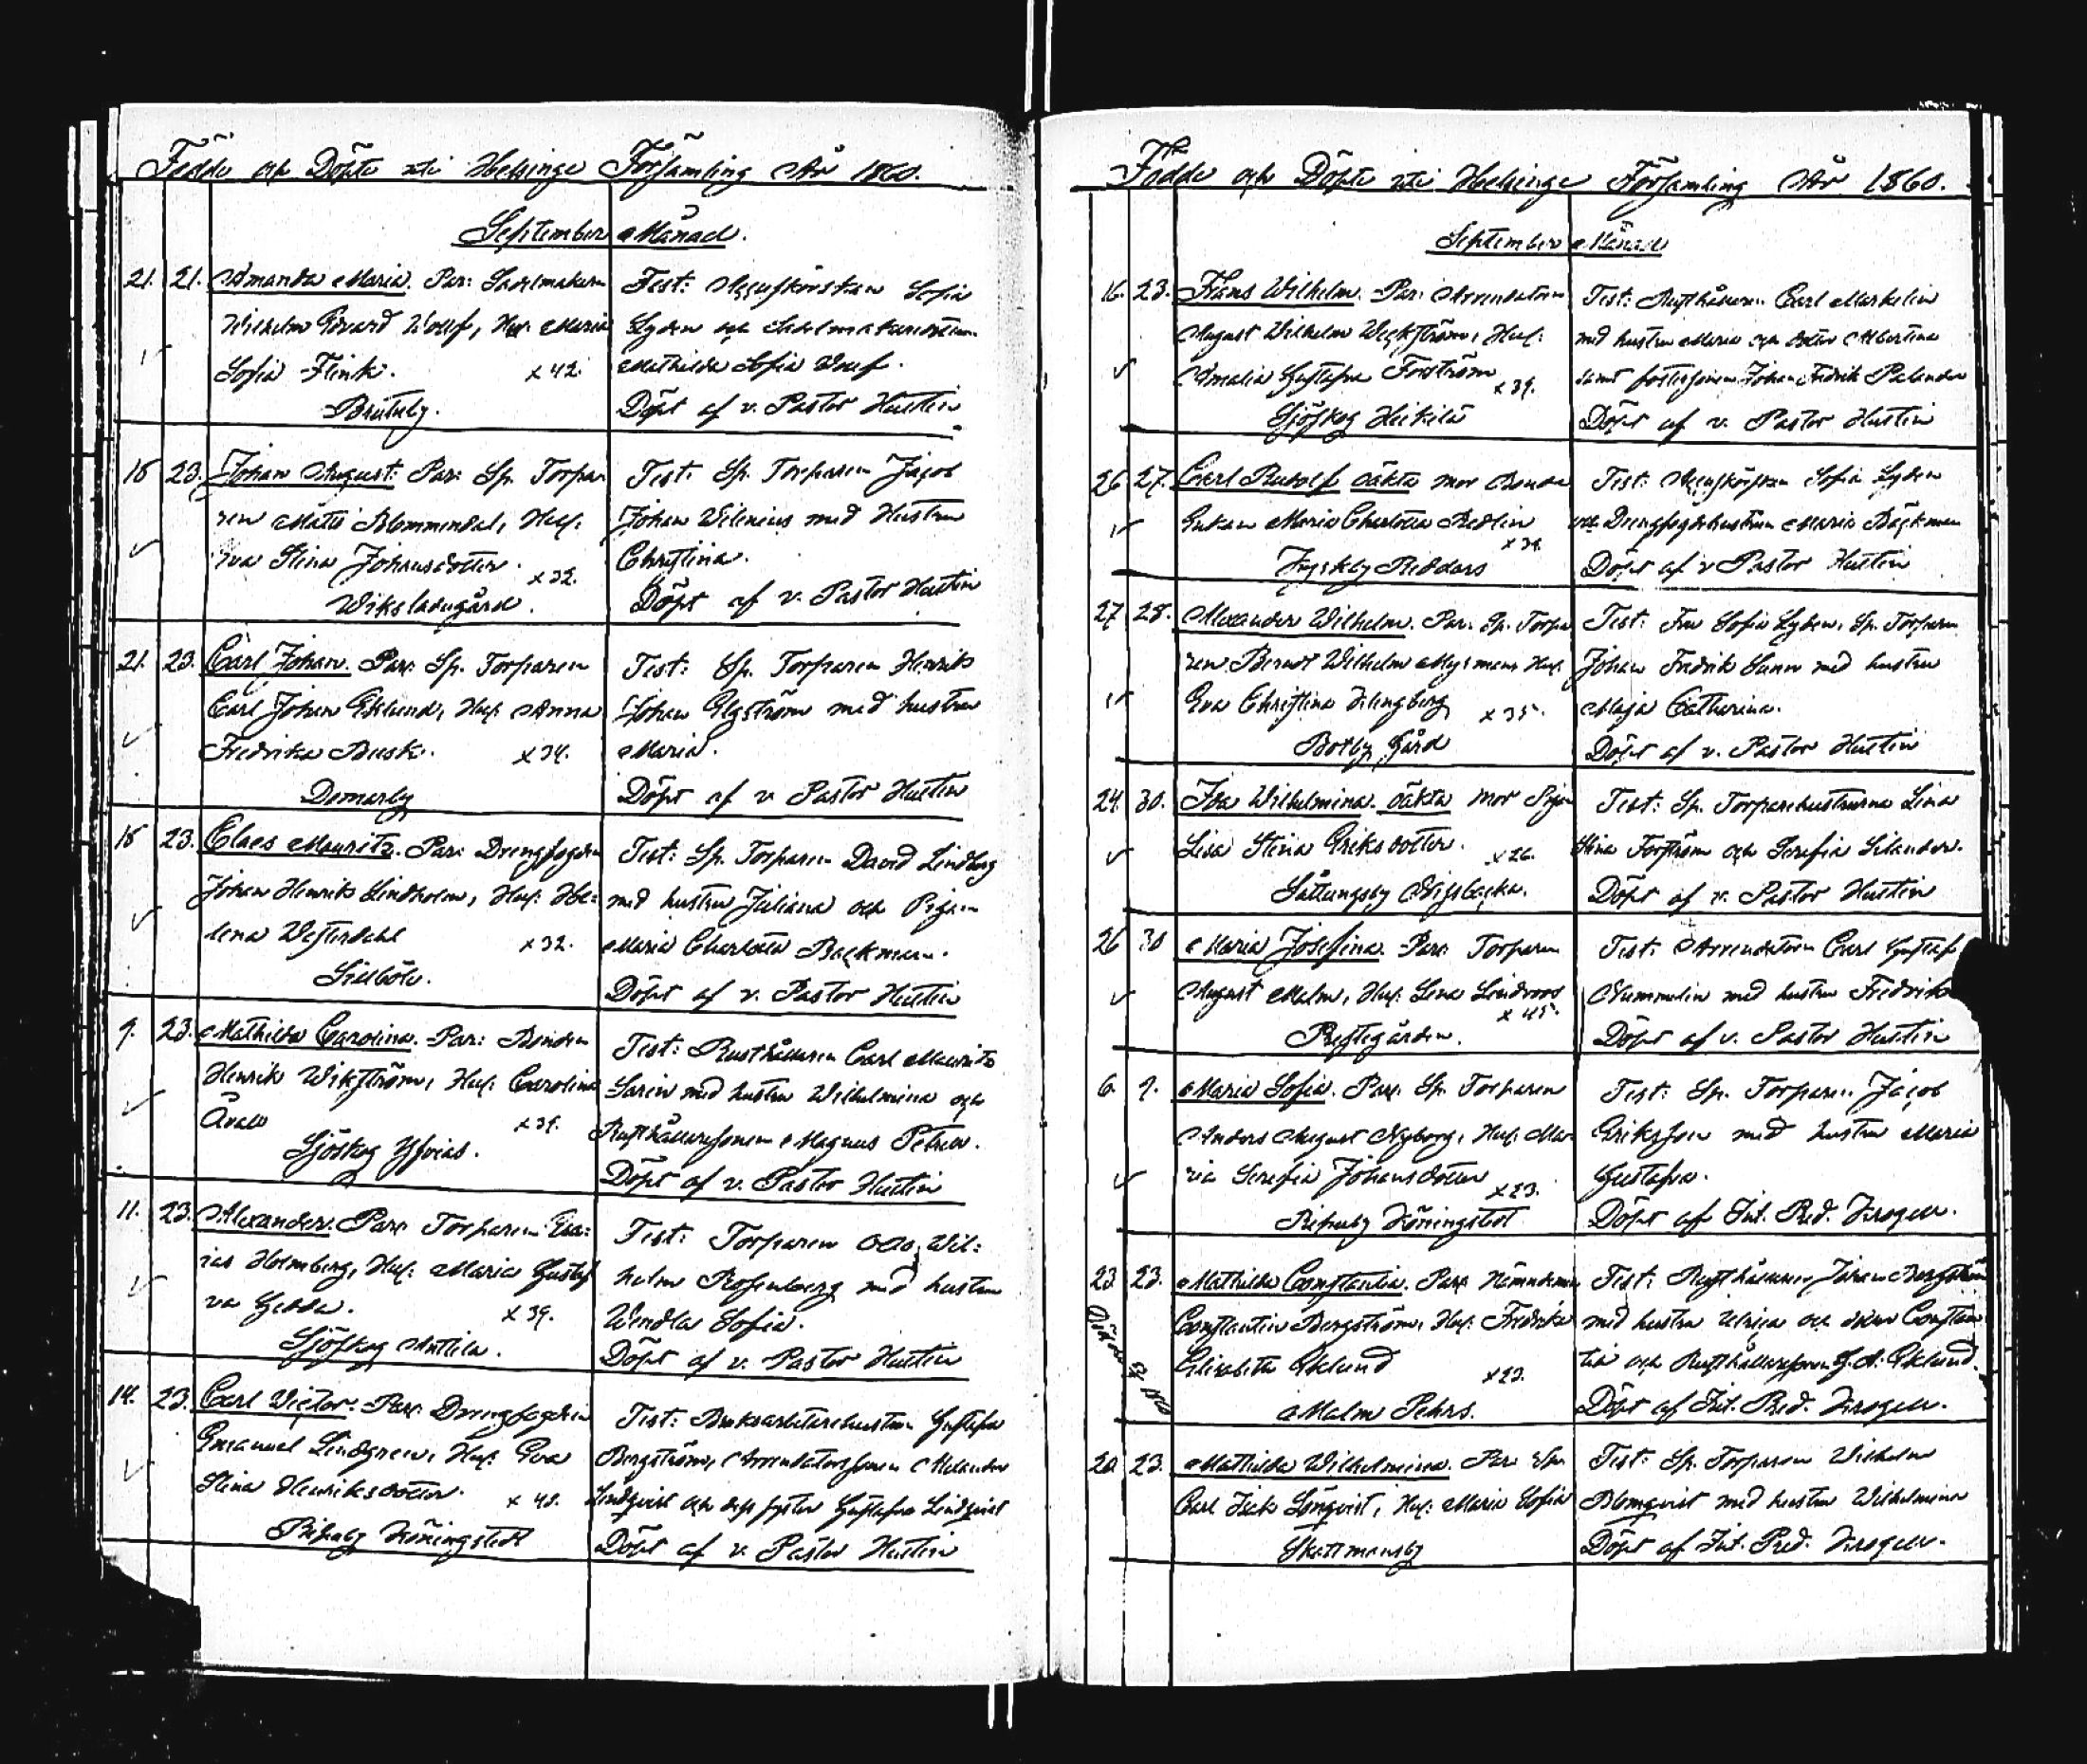 Födde och Döpte uti Helsinge Församling År 1860.
September Månad.
21. 21. Amanda Maria. Par: Sadelmakaren
Wilhelm Edvard Wolff, Hus: Maria
Sofia Flink. x 42.
Brutuby.
Test: Sofia
Lyden och
Mathilda Sofia Wolff.
Döpt af v. Pastor Hustin
18 23. Johan August: Par: Sp. Torpa-
ren Matts Blommendal, Hus:
Eva Stina Johansdotter. x 32.
Wiksladugård.
Test: Sp. Torparen Jacob
Johan Wilenius med Hustru
Christina.
Döpt af v. Pastor Hustin
21. 23. Carl Johan. Par: Sp. Torparen
Carl Johan Eklund, Hus: Anna
Fredrika Busk. x 34.
Domarby
Test: Sp. Torparen Henrik
Johan Elgström med hustru
Maria.
Döpt af v. Pastor Hustin
18 23. Claes Mauritz. Par: Drengfogden
Johan Henrik Lindholm, Hus: He-
lena Westerdahl x 32.
Sillböle.
Test: Sp. Torparen David Lindberg
med hustru Juliana och Pigan
Maria Charlotta Backman.
Döpt af v. Pastor Hustin
9. 23. Mathilda Carolina. Par: Bonden
Henrik Wikström, Hus: Carolina
x 39.
Sjöskog
Test: Rusthållaren Carl Mauritz
Sarin med hustru Wilhelmina och
Rusthållaresonen Magnus Petrell.
Döpt af v. Pastor Hustin
11. 23. Alexander. Par: Torparen Esa-
ias Holmberg, Hus: Maria Gustaf
va Gedda. x 39.
Sjöskog Anttila.
Test: Torparen Otto Wil-
helm Rosenberg med hustru
Wendla Sofia.
Döpt af v. Pastor Hustin
14. 23. Carl Victor. Par: Drengfogden
Emanuel Lindgren, Hus: Eva
Stina Henriksdotter. x 40.
Ripuby Köningstedt
Test: Bruksarbetarehustrun Gustafva
Bergström, Arrendatorssonen
Lindqvist och dess syster Gustafva Lindqvist
Döpt af v. Pastor Hustin
Födde och Döpte uti Helsinge Församling År 1860.
September Månad
16. 23. Frans Wilhelm. Par: Arrendatorn
August Wilhelm Weckström, Hus:
Amalia Gustafva Forström x 39.
Sjöskog Heikilä
Test: Rusthållaren Carl Markelin
med hustru Maria och dotter Albertina
samt fostersonen Johan Fredrik Palander
Döpt af v. Pastor Hustin
26 27. Carl Rudolf oäkta mor Bonde
Enkan Maria Charlotta Redlin
x 39.
Test: Sofia Lyden
och Drengfogdehustrun Maria Bäckman
Döpt af v Pastor Hustin
27 28. Alexander Wilhelm. Par: Sp. Torpa
ren Berndt Wilhelm Nyman, Hus:
Eva Christina Klingberg x 35.
Botby Gård
Test: Fru Sofia Lyden, Sp. Torparen
Johan Fredrik med hustru
Maja Catharina.
Döpt af v. Pastor Hustin
24. 30. Ida Wilhelmina. oäkta mor Pigan
Lisa Stina Eriksdotter. x 26.
Sottungsby Nissbacka.
Test: Sp. Torparehustrurna Lina
Stina Forström och Serafia Silander.
Döpt af v. Pastor Hustin
26 30 Maria Josefina. Par: Torparen
August Malm, Hus: Lena Lindroos
x 45.
Prestegården.
Test: Arrendatorn Carl Gustaf
Nummelin med hustru Fredrika
Döpt af v. Pastor Hustin
6. 9. Maria Sofia. Par: Sp. Torparen
Anders August Nyborg, Hus: Ma-
ria Serafia Johansdotter x 23.
Ripuby Köningstedt
Test: Sp. Torparen Jacob
Eriksson med hustru Maria
Gustafva.
Döpt af Int. Pred. Krogell.
23 23. Mathilda Constantia. Par: Nämndeman
Constantin Bergström, Hus: Fredrika
Elisabeta Eklund x 23.
Malm Pehrs.
Test: Rusthållaren Johan Bergström
med hustru Ulrica och dotter Constan
tia och Rusthållaresonen G. A. Eklund.
Döpt af Int. Pred. Krogell.
20. 23. Mathilda Wilhelmina. Par: Sp.
Carl Isak Lönqvist, Hus: Maria Sofia
Skattmansby
Test: Sp. Torparen Wilhelm
Blomqvist med hustru Wilhelmina
Döpt af Int. Pred. Krogell.